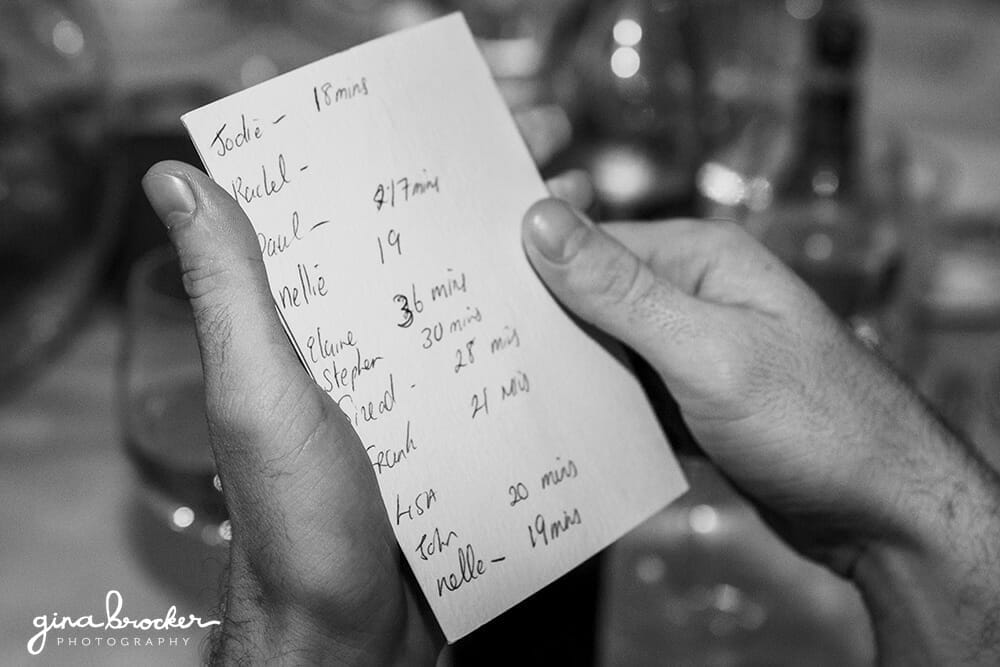 Jodie - 18 mins
Rachel -
Paul - 17 mins
nellie 19
Elaine 36 mins
Stephen 30 mins
Sinead - 28 mis
Frank 21 mis
LISA
John 20 mins
nelle - 19 mins
gina brocker
PHOTOGRAPHY